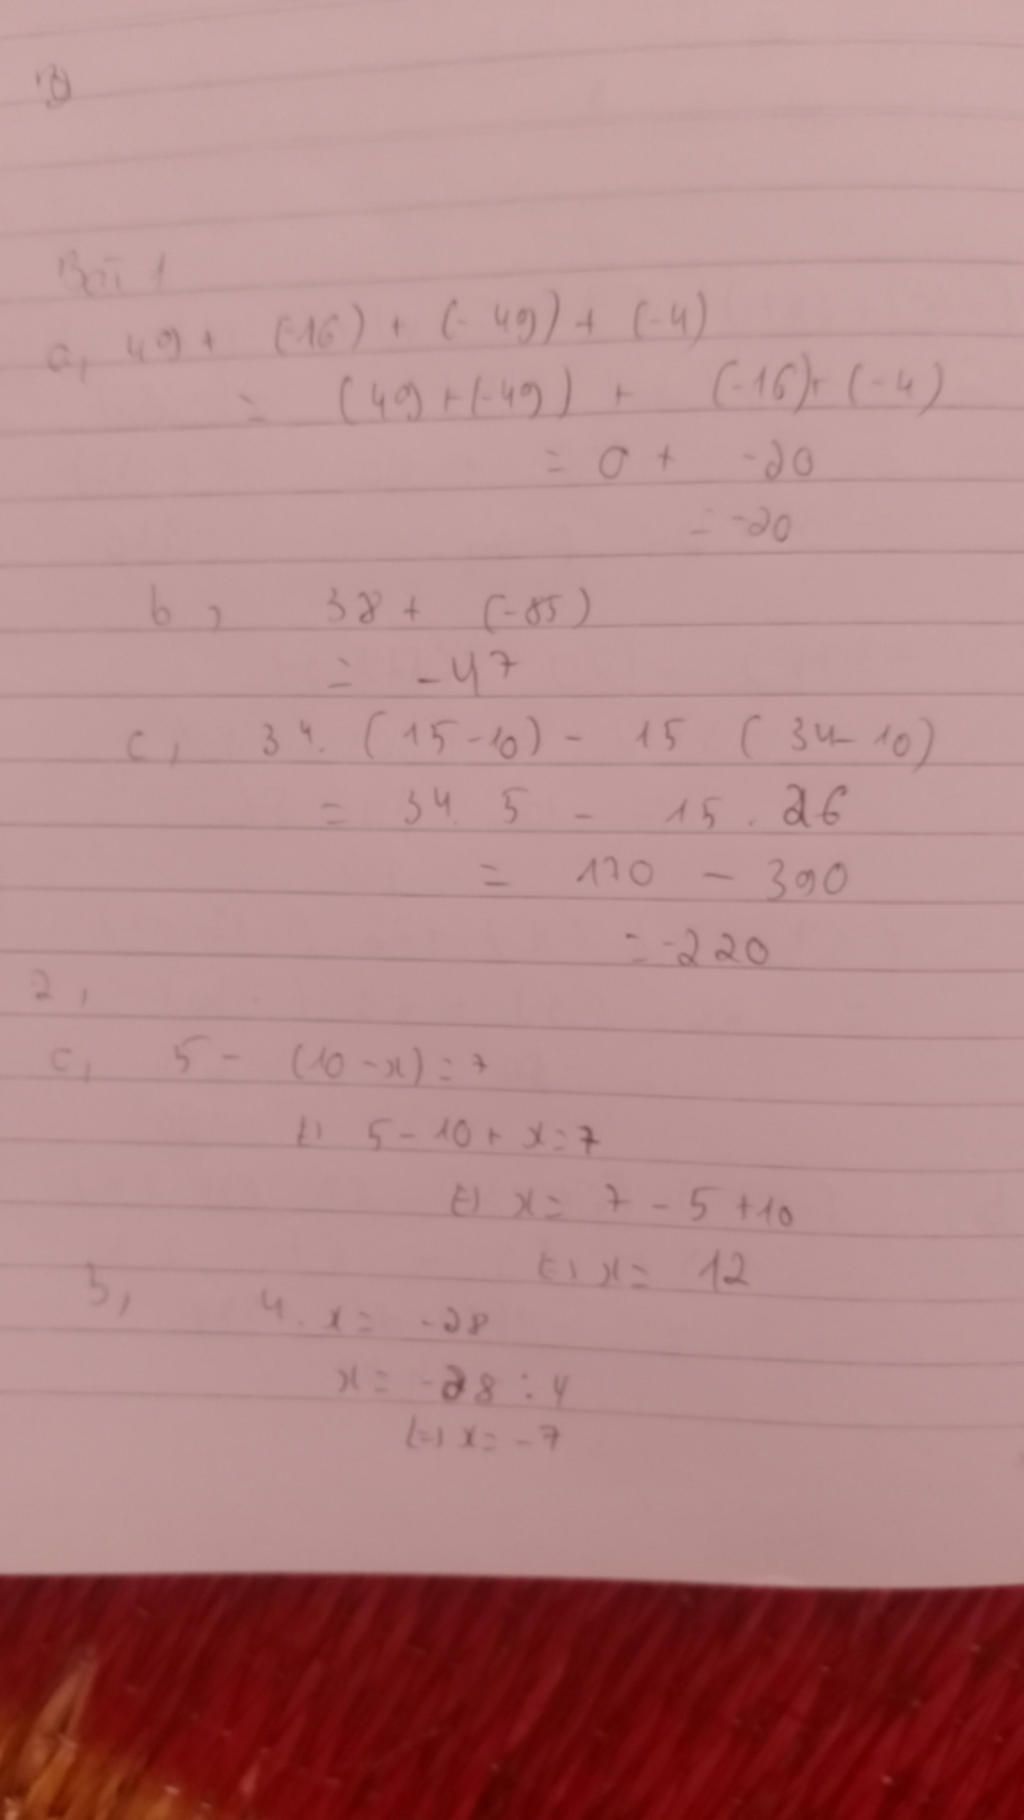 Bài 1
a, 49 + (-16) + (-49) + (-4)
= (49 + (-49) + (-16) + (-4)
= 0 + -20
= -20
b, 38 + (-85)
= -47
c, 34. (15-10) - 15 (34-10)
= 34. 5 - 15. 26
= 170 - 390
= -220
2,
c, 5 - (10 - x) = 7
5 - 10 + x = 7
x = 7 - 5 + 10
x = 12
b, 4. x = -28
x = -28 : 4
(=) x = -7